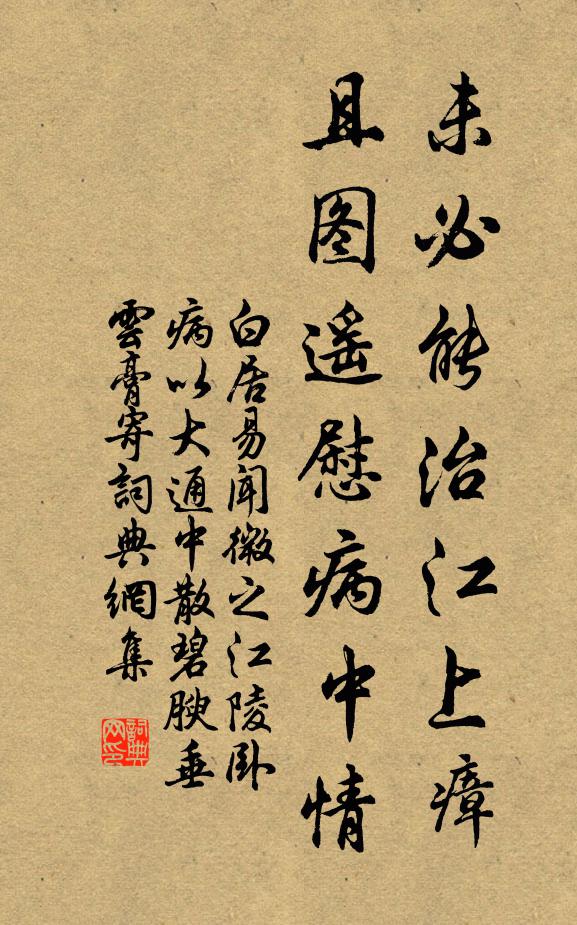 未必能治江上瘴
且图遥慰病中情
白居易闻微之江陵卧
病以大通中散碧腴垂
雲膏寄詞典網集
詞典网印